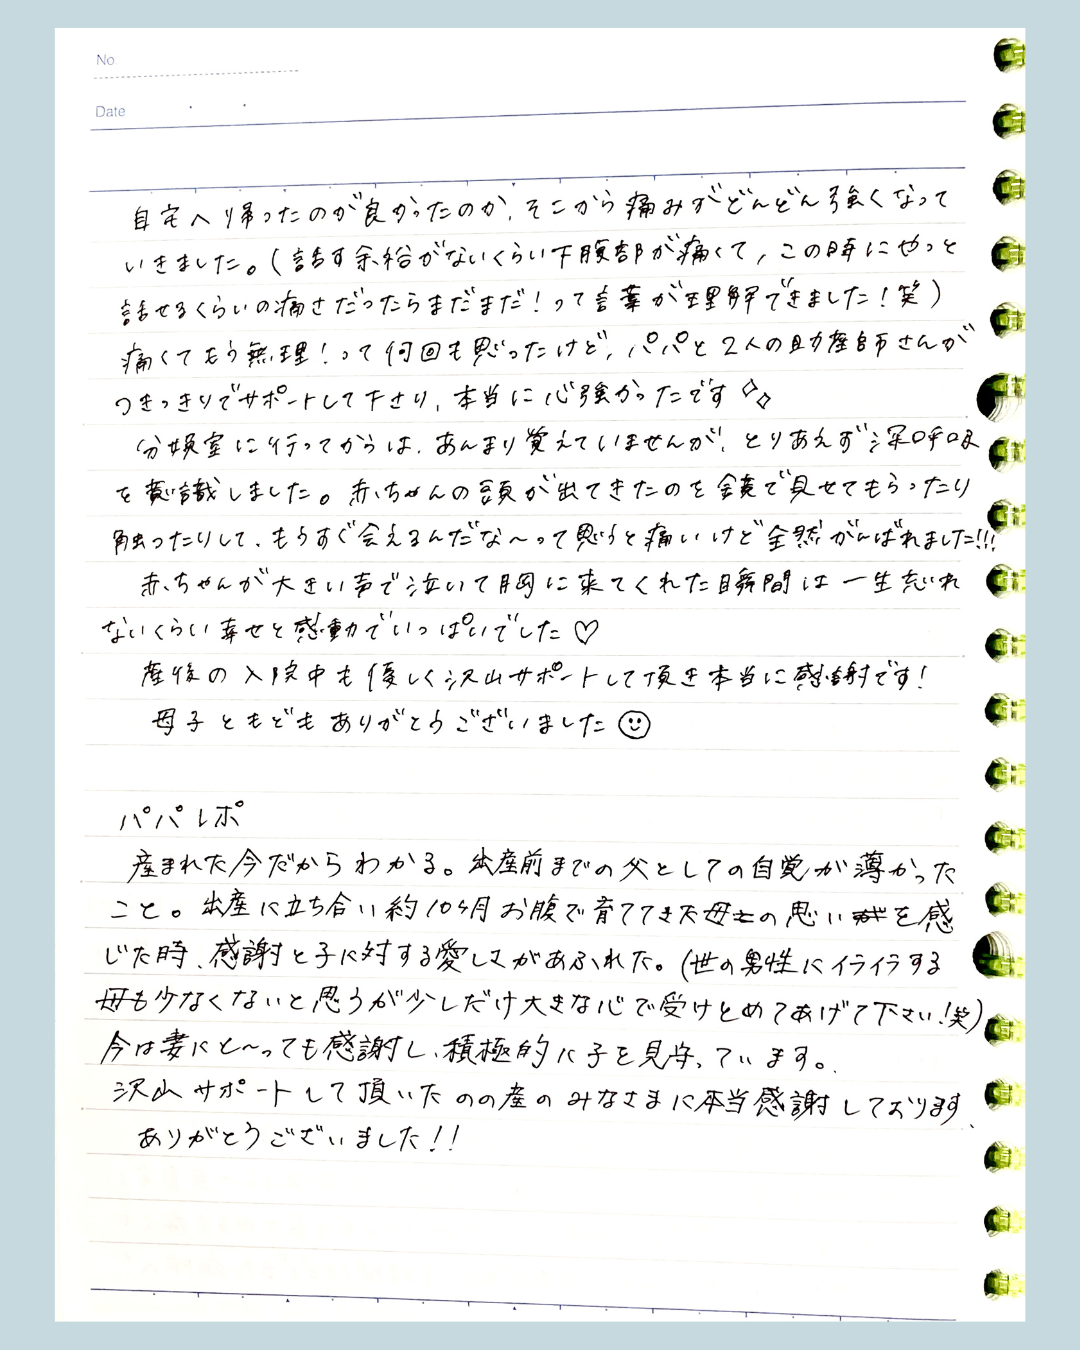 No
Date
自宅へり帰ったのが良かったのか、そこから痛みがどんどん強くなって
いきました。(話す余裕がないくらい下腹部が痛くて、この時にやっと
話せるくらいの痛さだったらまだまだ!って言葉が理解できました!笑)
痛くてもう無理!って何回も思ったけど、パパと2人の助産師さんが
つきっきりでサポートして下さり、本当に心強かったです✧✧
分娩室に行ってからは、あんまり覚えていませんが、とりあえず深呼吸
を意識しました。赤ちゃんの頭が出てきたのを鏡で見せてもらったり
触ったりして、もうすぐ会えるんだな〜って思うと痛いけど全然がんばれました!!!
赤ちゃんが大きい声で泣いて胸に来てくれた瞬間は一生忘れ
ないくらい幸せと感動でいっぱいでした♡
産後の入院中も優しく沢山サポートして頂き本当に感謝です!
母子ともどもありがとうございました☺
パパレポ
産まれた今だからわかる。出産前までの父としての自覚が薄かった
こと。出産に立ち合い約10ヶ月お腹で育ててきた母の思いを感
じた時、感謝と子に対する愛しさがあふれた。(世の男性にイライラする
母も少なくないと思うが少しだけ大きな心で受けとめてあげて下さい!笑)
今は妻にと〜っても感謝し、積極的に子を見守っています。
沢山サポートして頂いたのの産のみなさまに本当感謝しております、
ありがとうございました!!